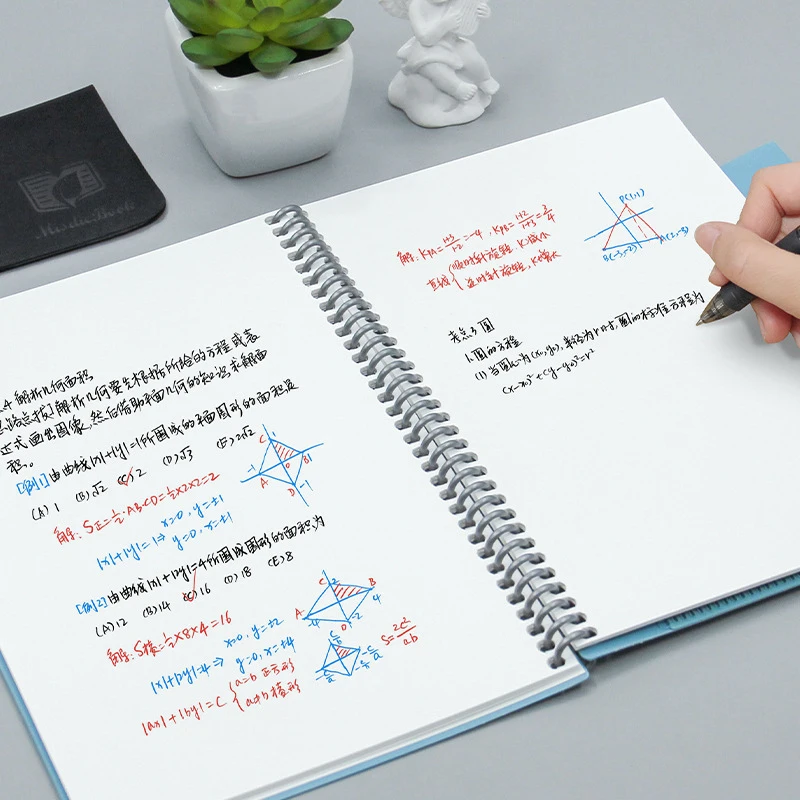 4 解析几何面积
思路点拨]解析几何要先根据所给的方程或表
达式画出图像,然后借助平面几何的知识求解面
积。
[例1]由曲线|x|+|y|=1所围成的平面图形的面积是
(A) 1 (B)√2 (C) 2 (D)√3 (E) 2√2
解: S正=½·AB·CD=½×2×2=2
|x|+|y|=1⇒ x=0, y=±1
y=0, x=±1
C 1
-1 O B1
A
D -1
[例2]由曲线|x|+|2y|=4所围成图形的面积为
(A)12 (B)14 (C)16 (D)18 (E)8
解: S棱=½×8×4=16
|x|+|2y|=4⇒ x=0, y=±2
y=0, x=±4
C 2
A B
-4 4
D -2
|ax|+|by|=C { a=b 正方形
a≠b 菱形
S=2c²/ab
解: KPA=(1+3)/(1-2)=-4, KPB=(1+2)/(1+3)=3/4
直线 { 顺时针旋转, K减小
逆时针旋转, K增大
P(1,1)
B(-3,-2)
A(2,-3)
考点3 圆
1.圆的方程
(1) 当圆心为(x₀,y₀), 半径为r时, 圆的标准方程为
(x-x₀)²+(y-y₀)²=r²